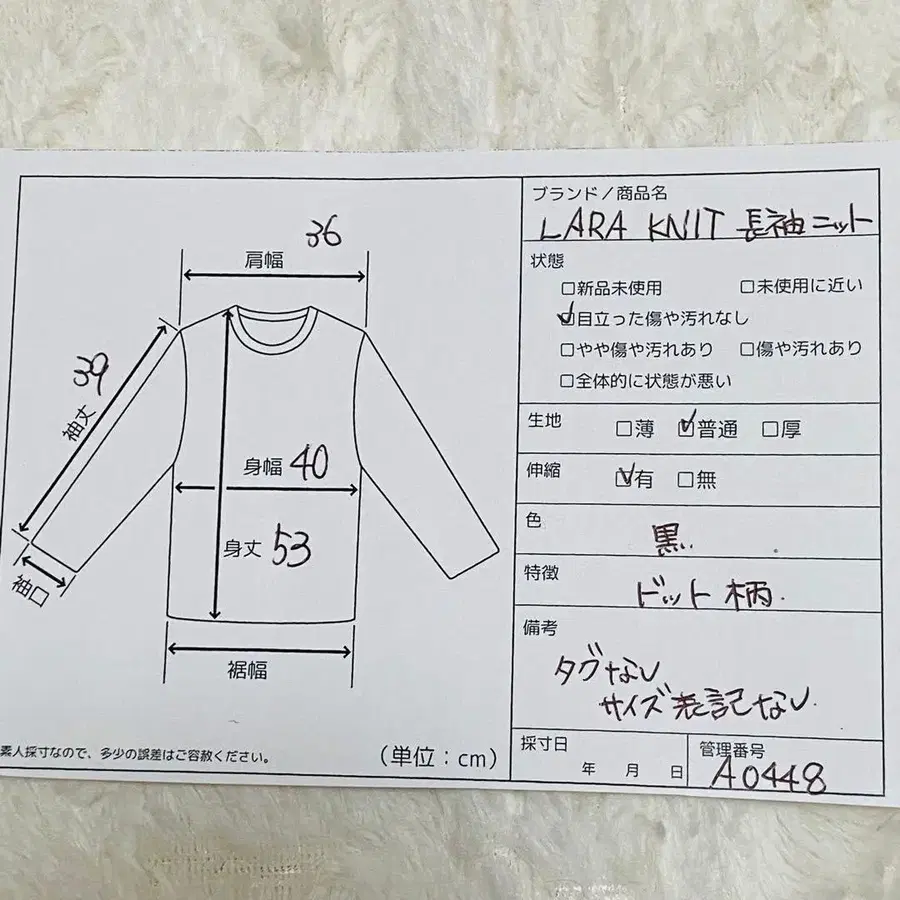 36
肩幅
39
袖丈
身幅 40
身丈 53
袖口
裾幅
素人採寸なので、多少の誤差はご容赦ください。
(単位：cm)
ブランド／商品名
LARA KNIT 長袖ニット
状態
□新品未使用 □未使用に近い
☑目立った傷や汚れなし
□やや傷や汚れあり □傷や汚れあり
□全体的に状態が悪い
生地 □薄 ☑普通 □厚
伸縮 ☑有 □無
色
黒.
特徴
ドット柄.
備考
タグなし
サイズ表記なし.
採寸日
年 月 日
管理番号
A0448